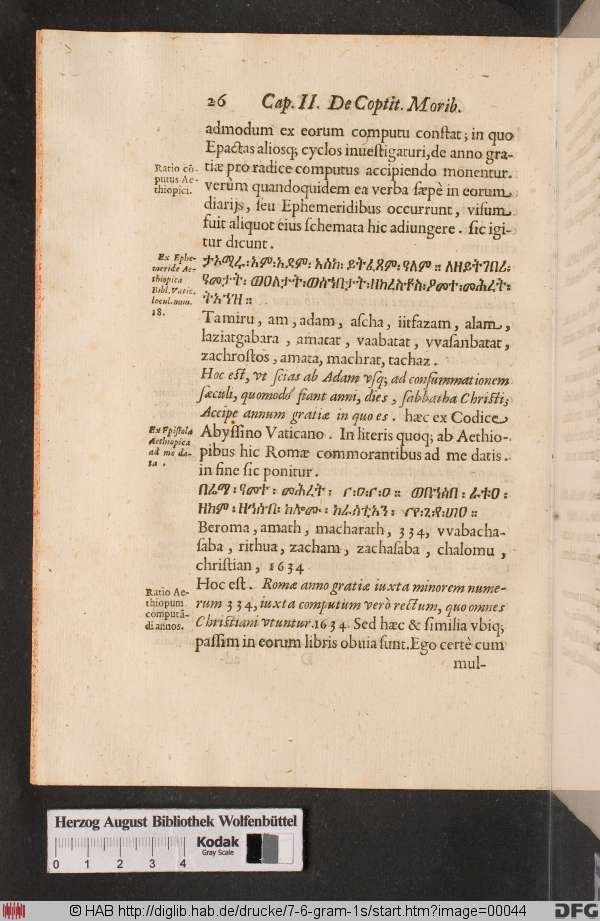 26 Cap. II. De Coptit. Morib.
admodum ex eorum computu constat; in quo
Epactas aliosq; cyclos inuestigaturi, de anno gra-
tiæ pro radice computus accipiendo monentur.
verùm quandoquidem ea verba sæpè in eorum
diarijs, seu Ephemeridibus occurrunt, visum
fuit aliquot eius schemata hic adiungere. sic igi-
tur dicunt.
Ratio cõ-
putus Ae-
thiopici.
Ex Ephe-
meride Ae-
thiopica
Bibl. Vatic.
locul. num.
18.
Tamiru, am, adam, ascha, iitfazam, alam,
laziatgabara, amatat, vaabatat, vvasanbatat,
zachrostos, amata, machrat, tachaz.
Hoc est, vt scias ab Adam vsq; ad consummationem
sæculi, quomodo fiant anni, dies, sabbatha Christi;
Accipe annum gratiæ in quo es. hæc ex Codice
Abyssino Vaticano. In literis quoq; ab Aethio-
pibus hic Romæ commorantibus ad me datis.
in fine sic ponitur.
Ex Epistola
Aethiopica
ad me da-
ta.
Beroma, amath, macharath, 334, vvabacha-
saba, rithua, zacham, zachasaba, chalomu,
christian, 1634
Hoc est. Romæ anno gratiæ iuxta minorem nume-
rum 334, iuxta computum verò rectum, quo omnes
Christiani vtuntur. 1634. Sed hæc & similia vbiq;
passim in eorum libris obuia sunt. Ego certè cum
mul-
Ratio Ae-
thiopum
computã-
di annos.
Herzog August Bibliothek Wolfenbüttel
Kodak
Gray Scale
0 1 2 3 4
© HAB http://diglib.hab.de/drucke/7-6-gram-1s/start.htm?image=00044
DFG